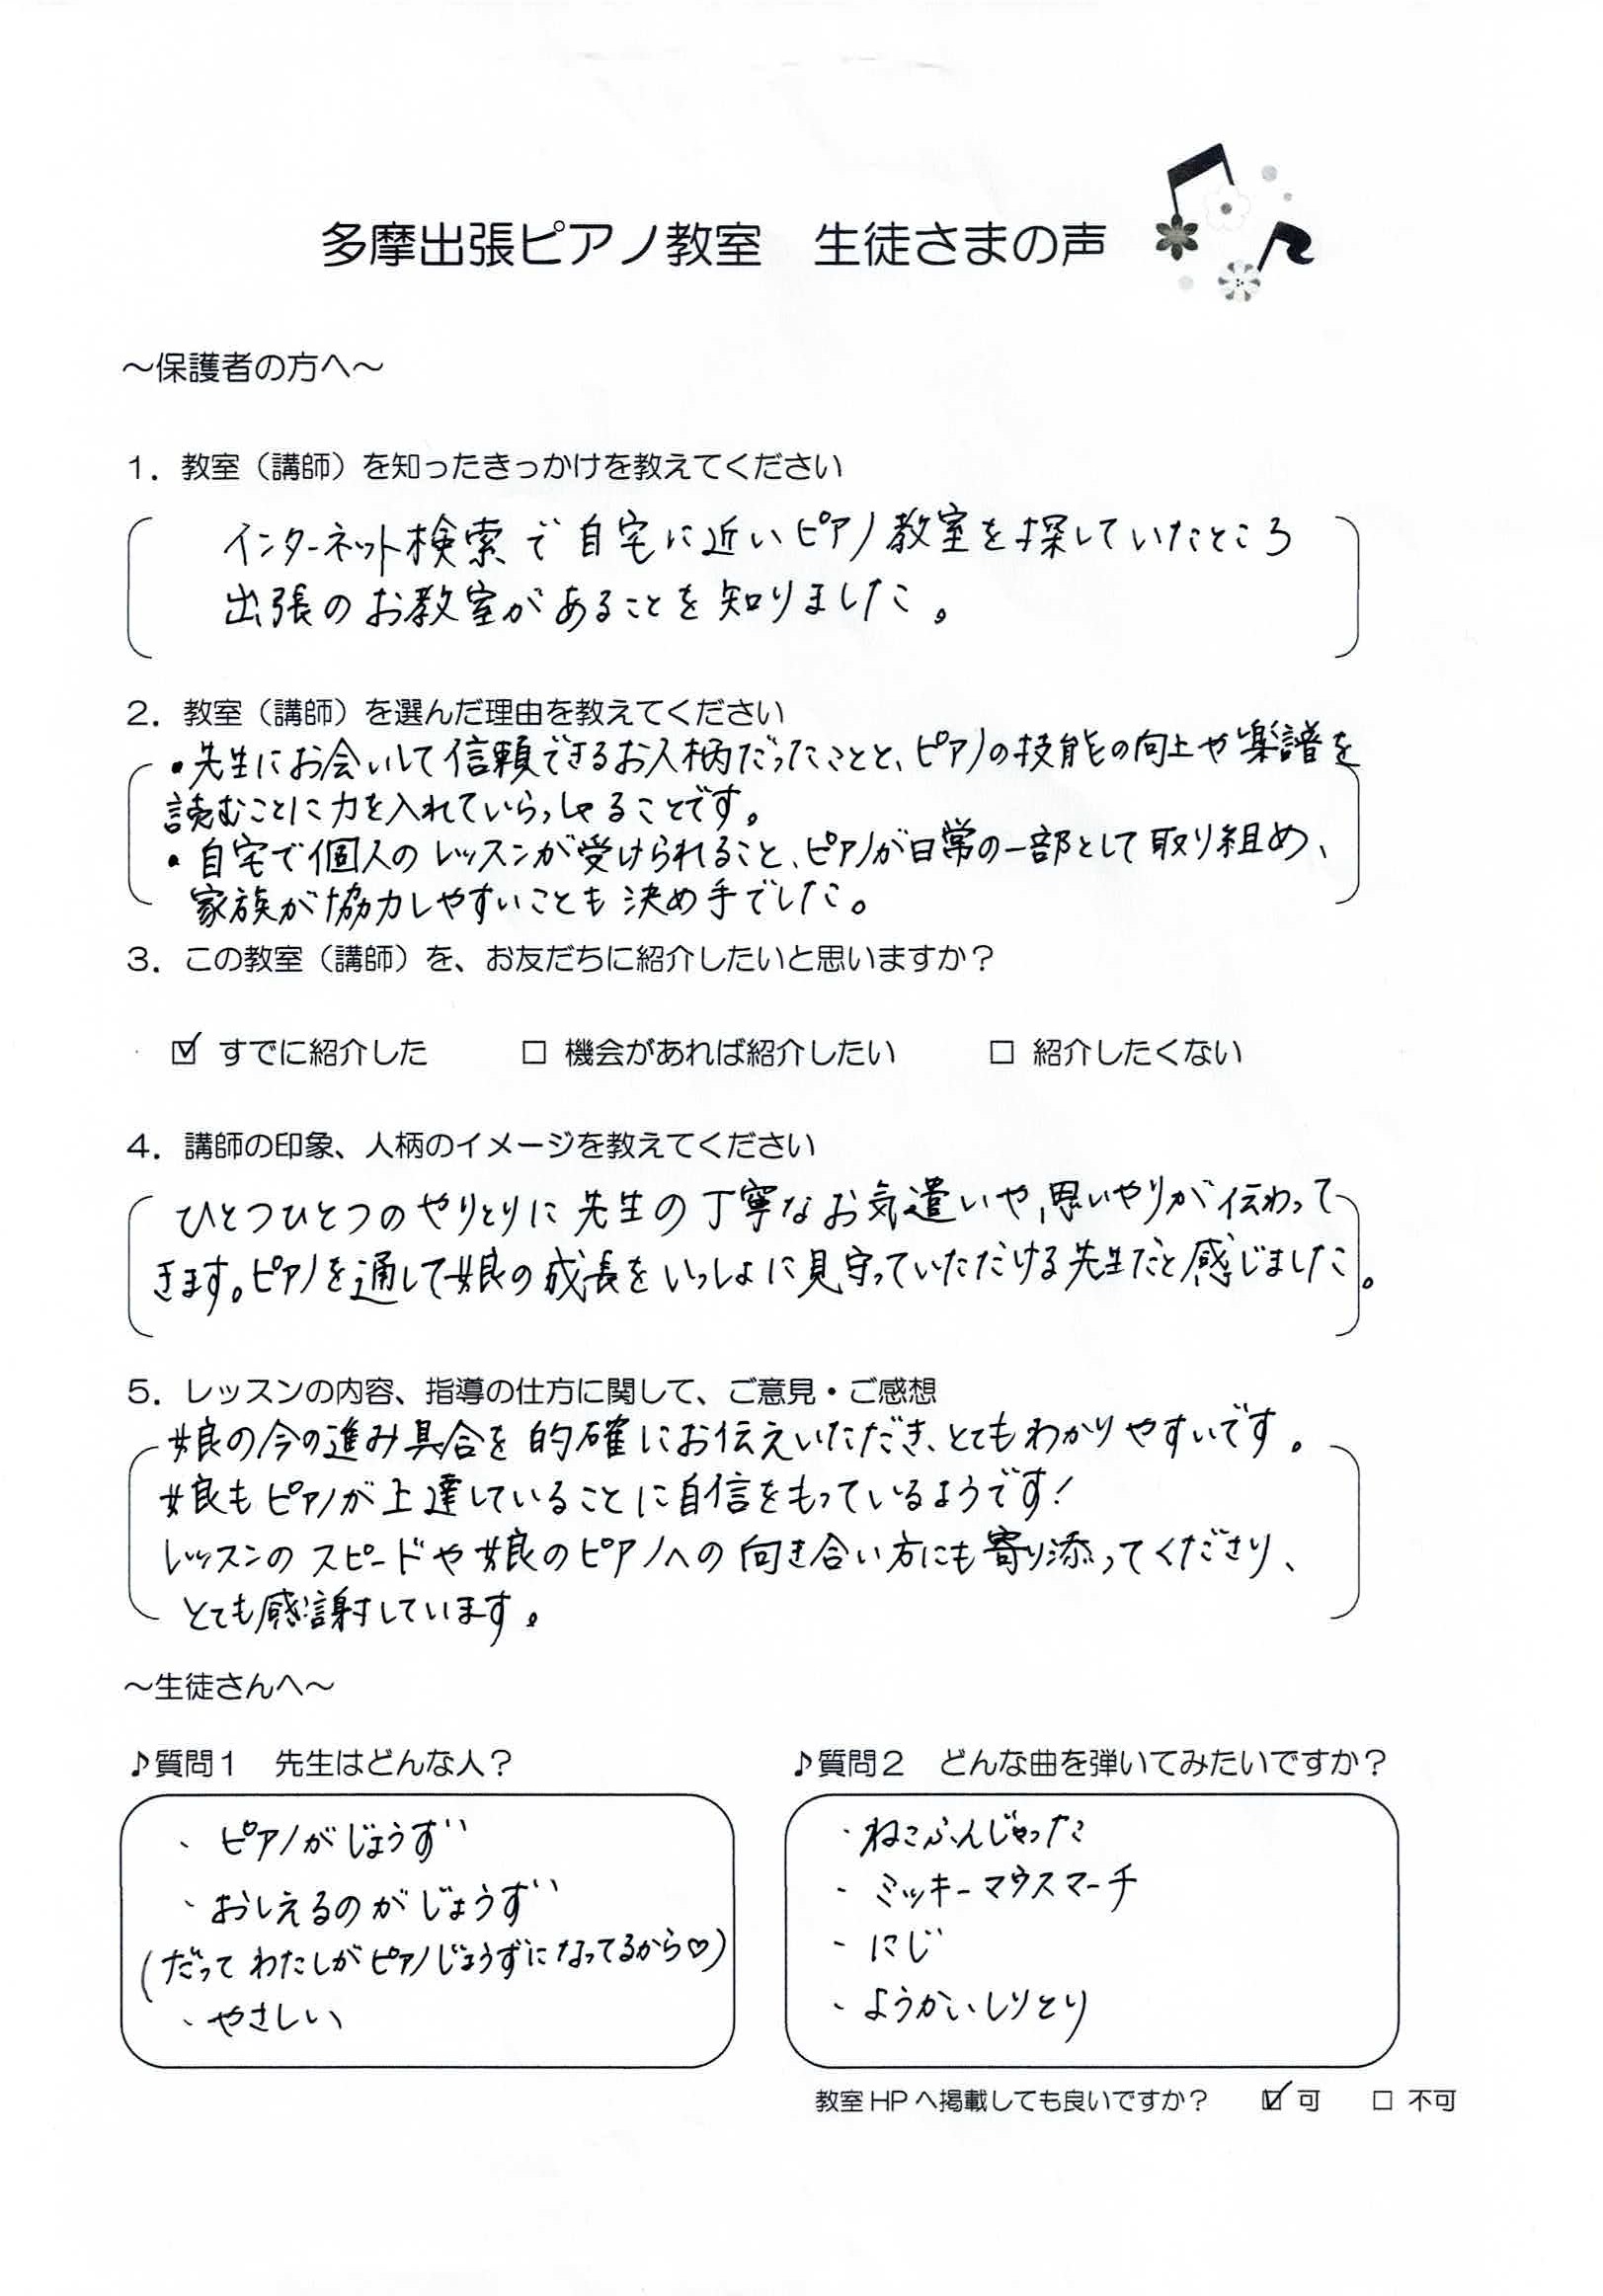 多摩出張ピアノ教室　生徒さまの声
～保護者の方へ～
１．教室（講師）を知ったきっかけを教えてください
インターネット検索で自宅に近いピアノ教室を探していたところ
出張のお教室があることを知りました。
２．教室（講師）を選んだ理由を教えてください
・先生にお会いして信頼できるお人柄だったことと、ピアノの技能の向上や楽譜を
読むことに力を入れていらっしゃることです。
・自宅で個人のレッスンが受けられること、ピアノが日常の一部として取り組め、
家族が協力しやすいことも決め手でした。
３．この教室（講師）を、お友だちに紹介したいと思いますか？
☑ すでに紹介した　□ 機会があれば紹介したい　□ 紹介したくない
４．講師の印象、人柄のイメージを教えてください
ひとつひとつのやりとりに先生の丁寧なお気遣いや、思いやりが伝わって
きます。ピアノを通して娘の成長をいっしょに見守っていただける先生だと感じました。
５．レッスンの内容、指導の仕方に関して、ご意見・ご感想
娘の今の進み具合を的確にお伝えいただき、とてもわかりやすいです。
娘もピアノが上達していることに自信をもっているようです！
レッスンのスピードや娘のピアノへの向き合い方にも寄り添ってくださり、
とても感謝しています。
～生徒さんへ～
♪質問１　先生はどんな人？
・ピアノがじょうずい
・おしえるのがじょうずい
（だってわたしがピアノじょうずになってるから♡）
・やさしい
♪質問２　どんな曲を弾いてみたいですか？
・ねこふんじゃった
・ミッキーマウスマーチ
・にじ
・ようかいしりとり
教室HPへ掲載しても良いですか？　☑ 可　□ 不可